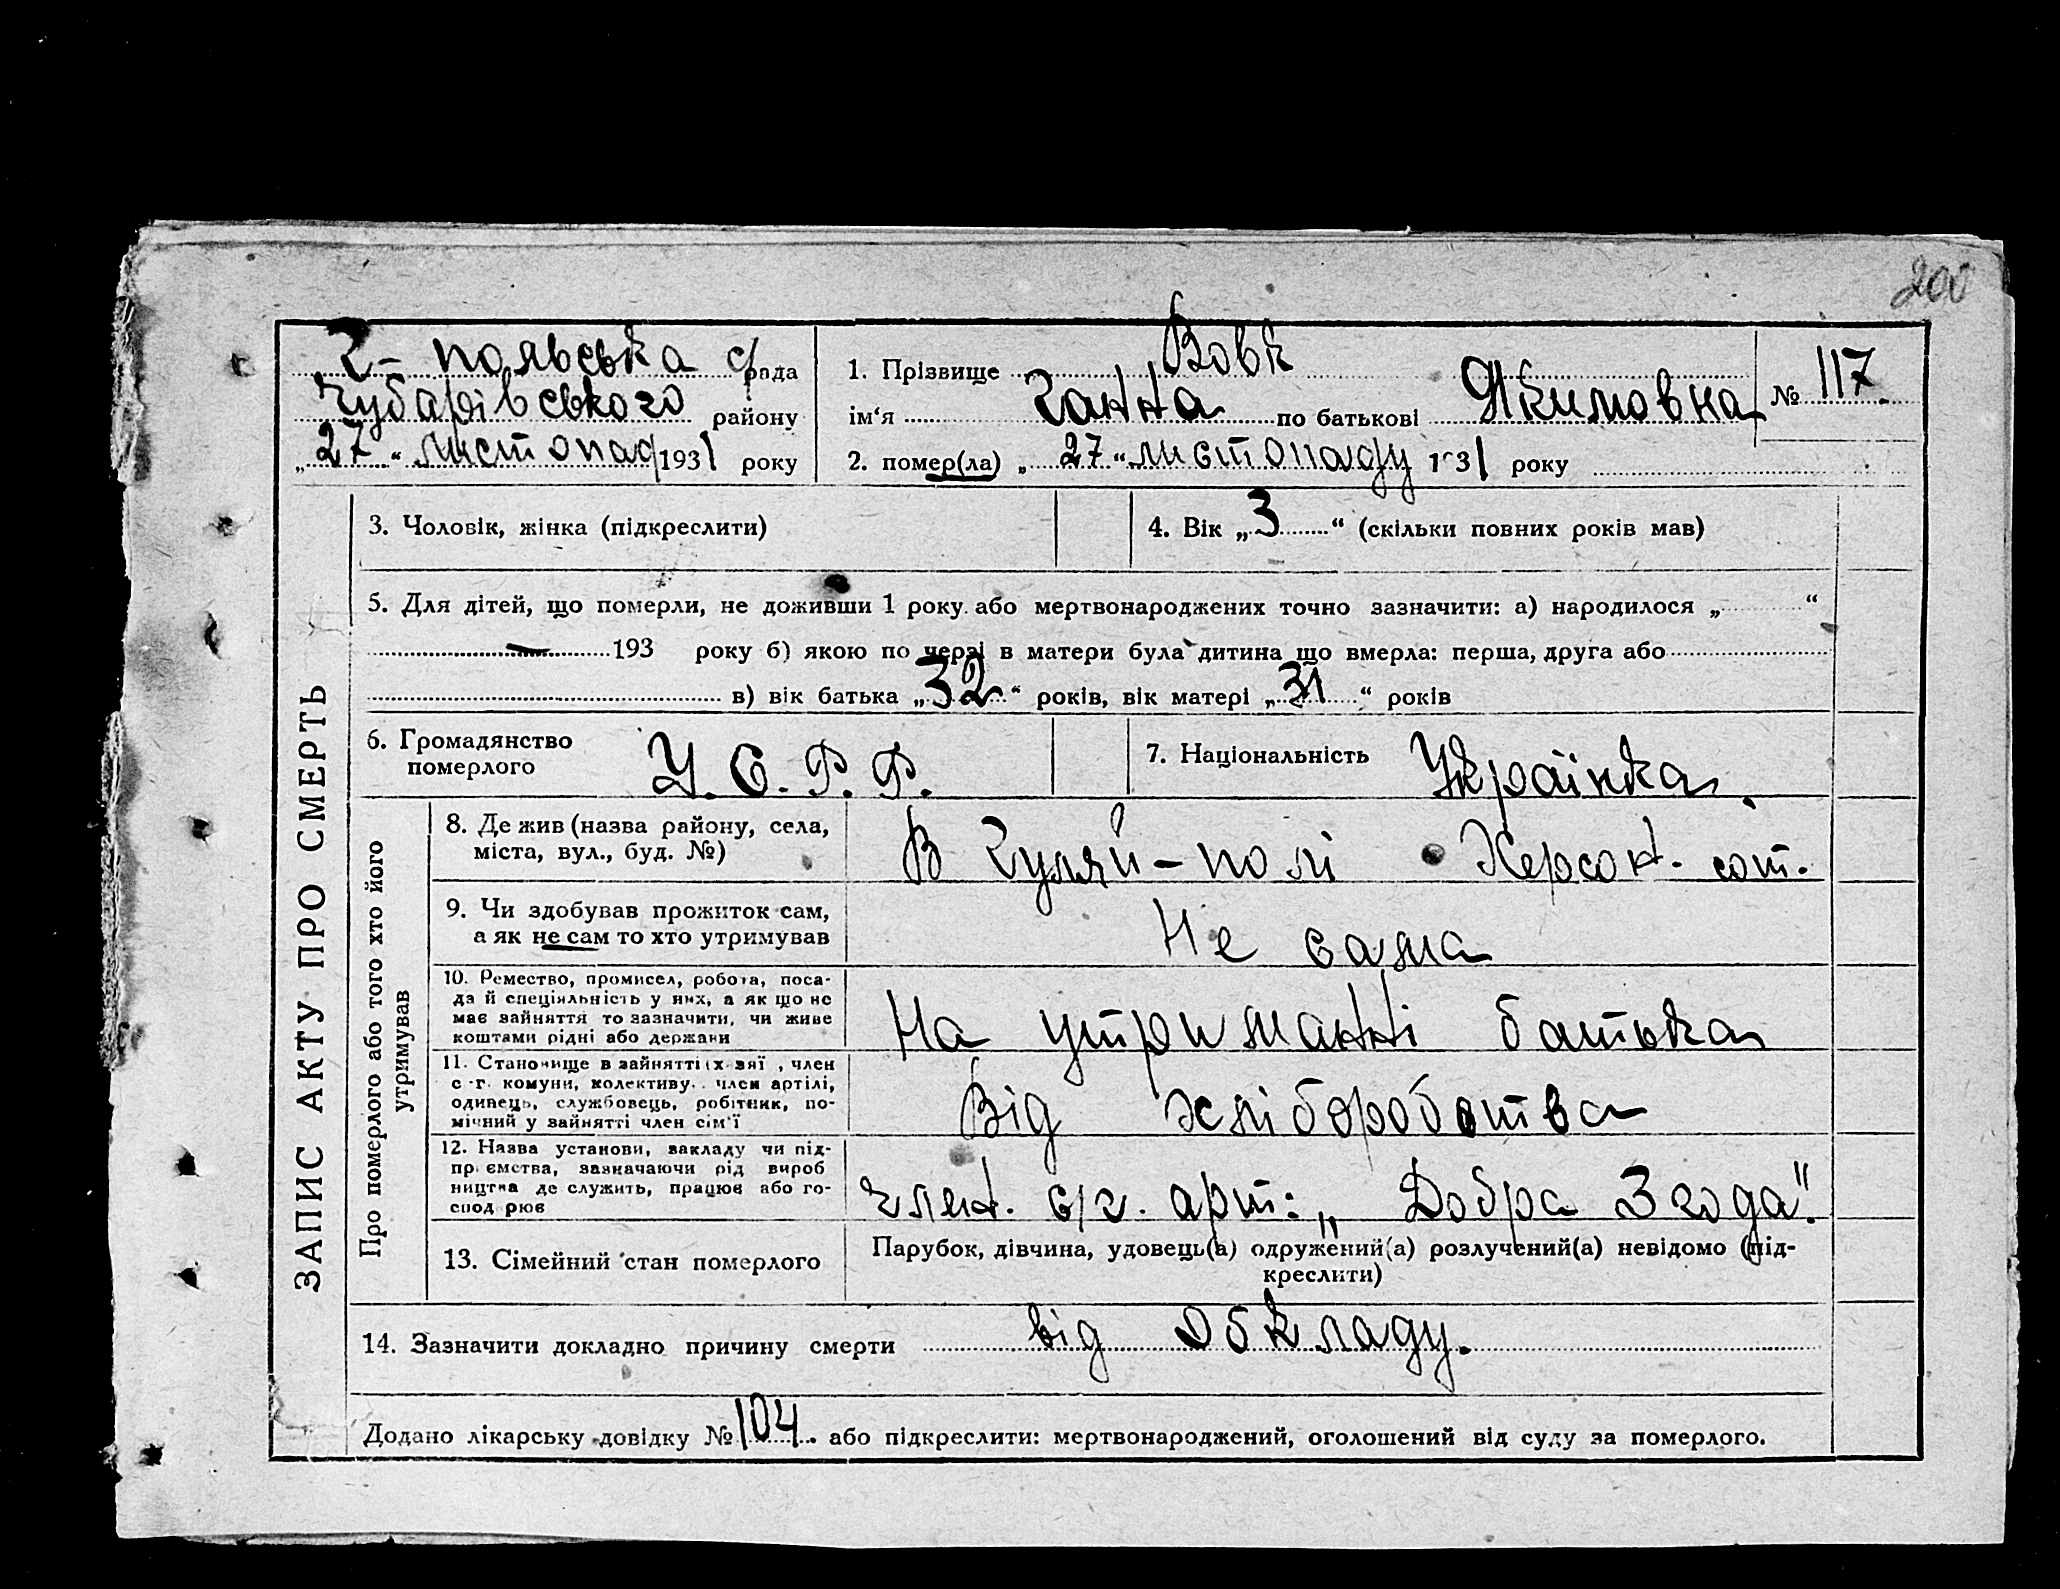 200
Г-польська с/рада
Чубарівського району
„27“ листопад 1931 року
1. Прізвище Вовк
ім‘я Ганна по батькові Якимовна
№ 117.
2. помер(ла) „27“ листопаду 1931 року
ЗАПИС АКТУ ПРО СМЕРТЬ
3. Чоловік, жінка (підкреслити)
4. Вік „3“ (скільки повних років мав)
5. Для дітей, що померли, не доживши 1 року або мертвонароджених точно зазначити: а) народилося „ “
— 193 року б) якою по черзі в матери була дитина що вмерла: перша, друга або
в) вік батька „32“ років, вік матері „31“ років
6. Громадянство
померлого
У.С.Р.Р.
7. Національність Українка
Про померлого або того хто його
утримував
8. Де жив (назва району, села,
міста, вул., буд. №)
В Гуляй-полі Херсон. сот.
9. Чи здобував прожиток сам,
а як не сам то хто утримував
Не сама
10. Ремество, промисел, робота, поса-
да й спеціяльність у них, а як що не
має зайняття то зазначити, чи живе
коштами рідні або держави
На утриманні батька
11. Становище в зайнятті х-зяї , член
с-г. комуни, колективу, член артілі,
одинець, службовець, робітник, по-
мічний у зайнятті член сім‘ї
Від хліборобства
12. Назва установи, закладу чи під-
пр ємства, зазначаючи рід вироб
ництва де служить, працює або го-
спод рює
член. с/г. арт: „Добра Згода".
13. Сімейний стан померлого
Парубок, дівчина, удовець(а) одружений(а) розлучений(а) невідомо (під-
креслити)
14. Зазначити докладно причину смерти від обкладу.
Додано лікарську довідку № 104. або підкреслити: мертвонароджений, оголошений від суду за померлого.